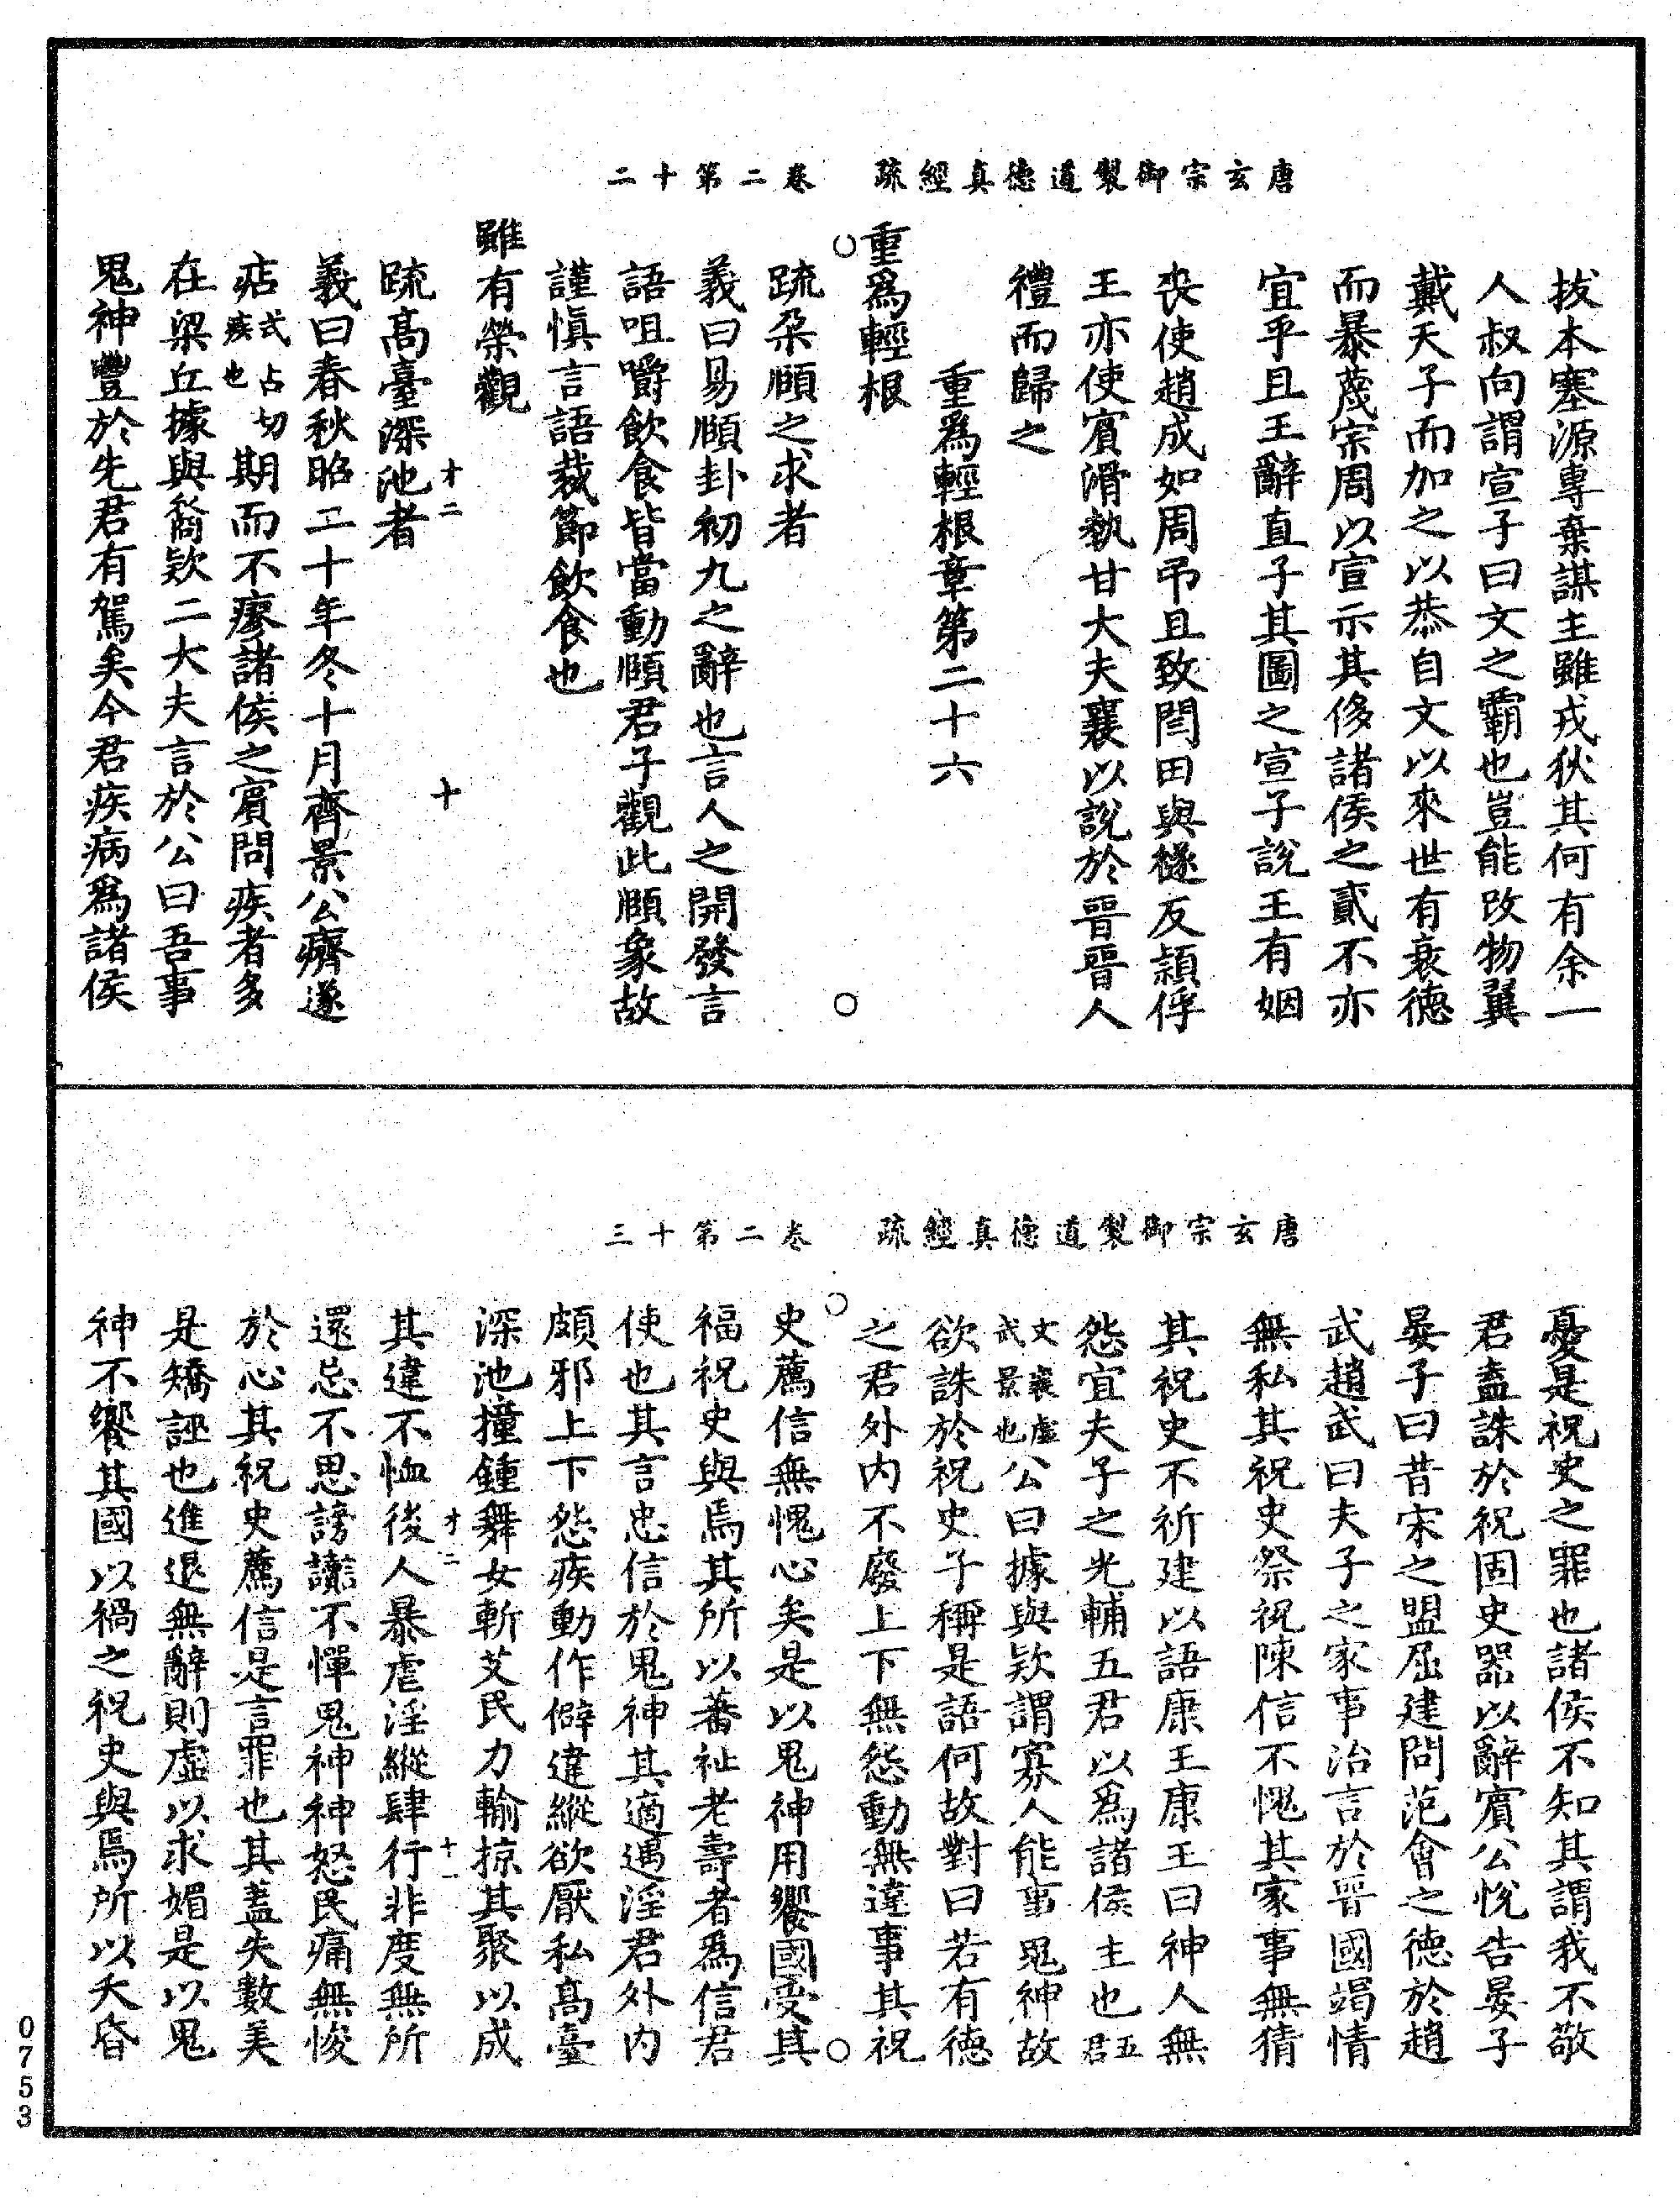 唐玄宗御製道德真經疏　卷二第十二
拔本塞源專棄謀主雖戎狄其何有余一
人叔向謂宣子曰文之霸也豈能改物翼
戴天子而加之以恭自文以來世有衰德
而暴蔑宗周以宣示其侈諸侯之貳不亦
宜乎且王辭直子其圖之宣子說王有姻
丧使趙成如周弔且致閻田與襚反潁俘
王亦使賓滑執甘大夫襄以說於晉晉人
禮而歸之
重爲輕根章第二十六
重爲輕根
疏朶頤之求者
義曰易頤卦初九之辭也言人之開發言
語咀嚼飲食皆當動頤君子觀此頤象故
謹慎言語裁節飲食也
雖有榮觀
才二　十
疏高臺深池者
義曰春秋昭二十年冬十月齊景公癠遂
痁式占切疾也期而不瘳諸侯之賓問疾者多
在梁丘據與裔欵二大夫言於公曰吾事
鬼神豐於先君有駕矣今君疾病爲諸侯
唐玄宗御製道德真經疏　卷二第十三
憂是祝史之罪也諸侯不知其謂我不敬
君盍誅於祝固史嚚以辭賓公悅告晏子
晏子曰昔宋之盟屈建問范會之德於趙
武趙武曰夫子之家事治言於晉國竭情
無私其祝史祭祝陳信不愧其家事無猜
其祝史不祈建以語康王康王曰神人無
怨宜夫子之光輔五君以爲諸侯主也五君
文襄虛武景也公曰據與欵謂寡人能事鬼神故
欲誅於祝史子稱是語何故對曰若有德
之君外内不廢上下無怨動無違事其祝
史薦信無愧心矣是以鬼神用饗國受其
福祝史與焉其所以蕃祉老壽者爲信君
使也其言忠信於鬼神其適遇淫君外内
頗邪上下怨疾動作僻違縱欲厭私高臺
深池撞鍾舞女斬艾民力輸掠其聚以成
才二　十一
其違不恤後人暴虐淫縱肆行非度無所
還忌不思謗讟不憚鬼神神怒民痛無悛
於心其祝史薦信是言罪也其蓋失數美
是矯誣也進退無辭則虛以求媚是以鬼
神不饗其國以禍之祝史與焉所以夭昏
0753